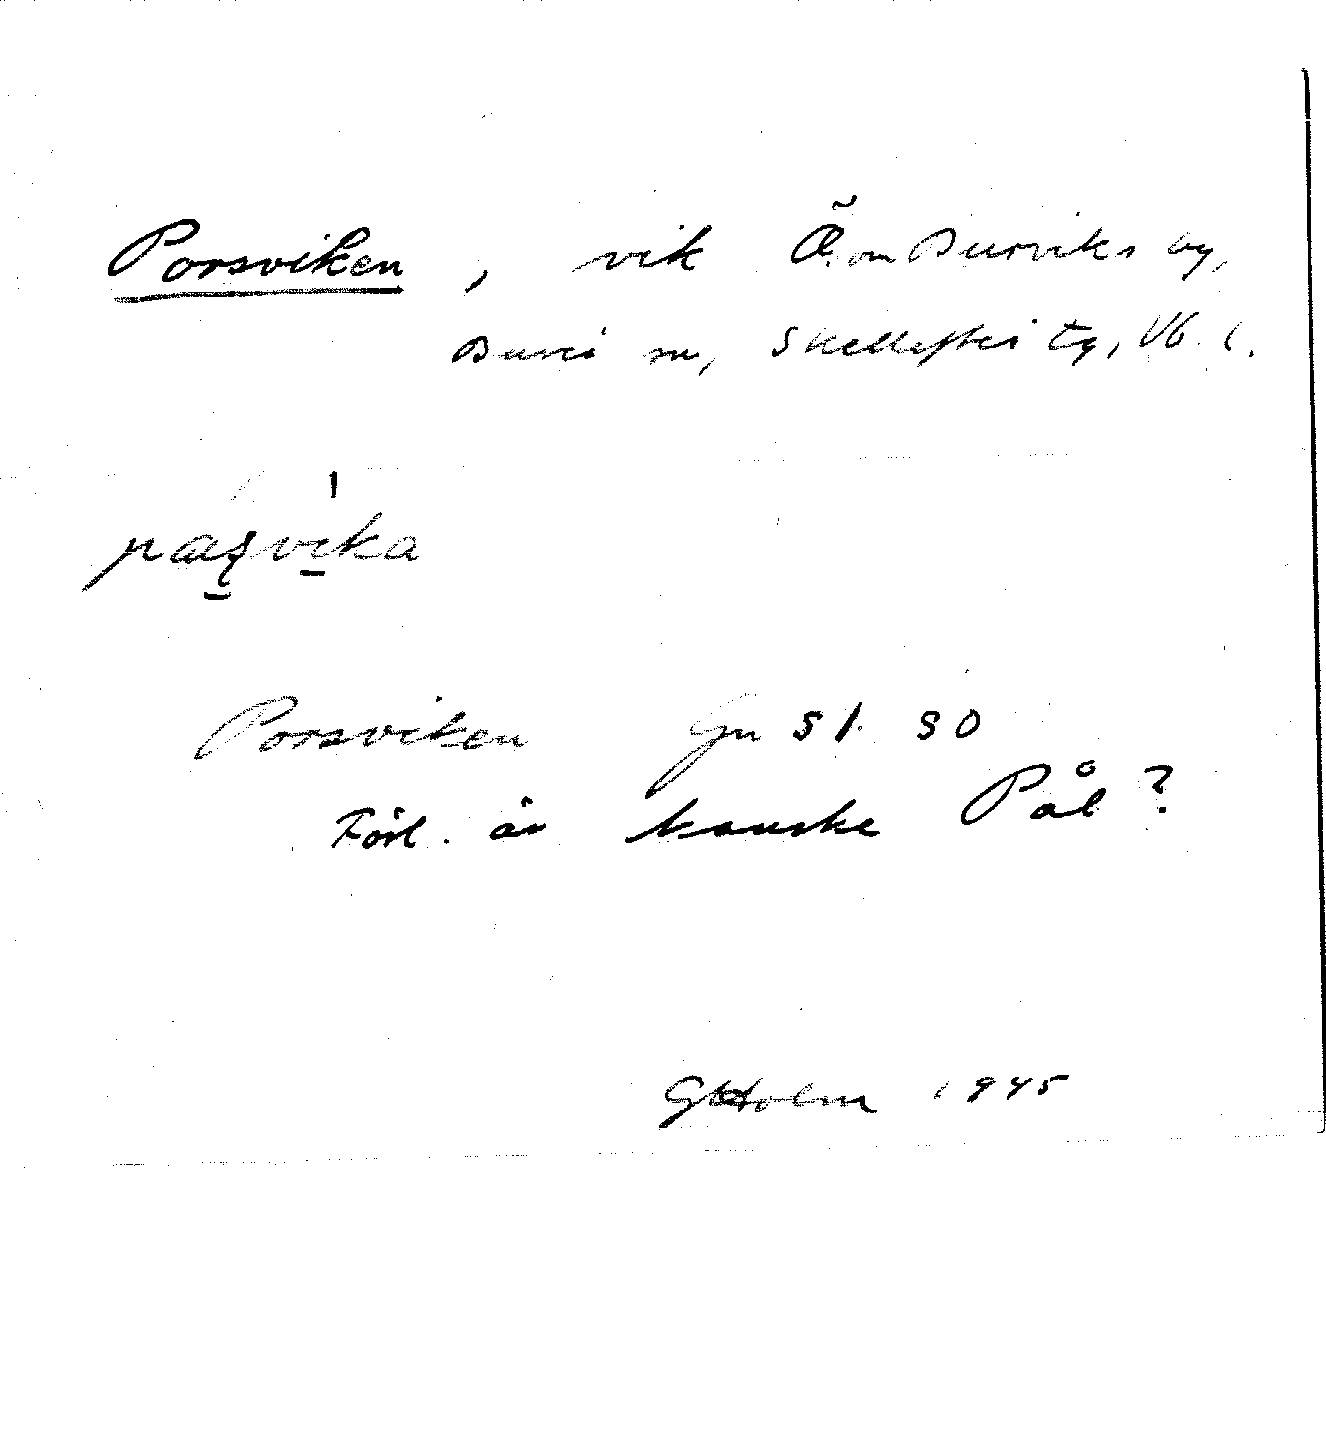 Porsviken, vik Ö. om Burviks by,
Bureå sn, Skellefteå tg, Vb. l.
Porsviken Gn 51. SO
Förl. är kanske Pål?
GHolm 1945